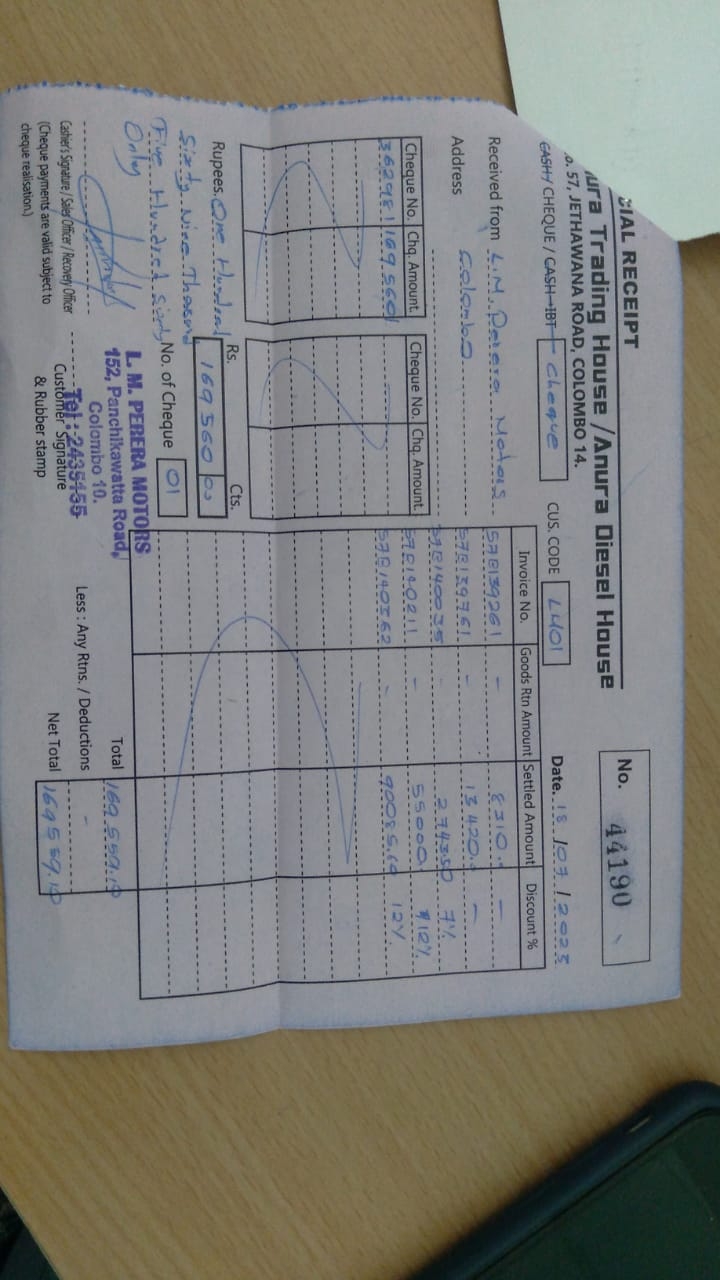 CIAL RECEIPT
No. 44190
ura Trading House / Anura Diesel House
o. 57, JETHAWANA ROAD, COLOMBO 14.
CASH / CHEQUE / CASH → IBT Cheque
CUS. CODE L401
Date. 18/07/2023
Received from L.M. Perera Motors
Address Colombo
Cheque No. Chq. Amount. Cheque No. Chq. Amount.
362981 169,560/
Invoice No. Goods Rtn Amount Settled Amount Discount %
57B139261 - 8310.- -
57B139761 - 13420.- -
57B140035 - 27435.0 7%
57B140211 - 55000. 12%
57B140362 - 90085.60 12%
Rupees. One Hundred
Sixty Nine Thousand
Five Hundred Sixty
Only
Rs. Cts.
169 560 00
No. of Cheque 01
Total 169 559.10
Less : Any Rtns. / Deductions -
Net Total 169 559.10
L. M. PERERA MOTORS
152, Panchikawatta Road,
Colombo 10.
Tel : 2435455
Customer Signature
& Rubber stamp
Cashier's Signature / Sales Officer / Recovery Officer
(Cheque payments are valid subject to
cheque realisation.)